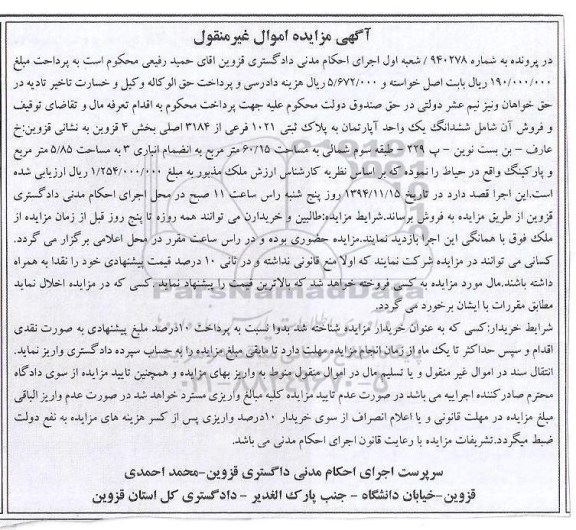 آگهی مزایده اموال غیرمنقول
در پرونده به شماره ۹۴۰۲۷۸ / شعبه اول اجرای احکام مدنی دادگستری قزوین آقای حمید رفیعی محکوم است به پرداخت مبلغ
۱۹۰/۰۰۰/۰۰۰ ریال بابت اصل خواسته و ۵/۶۷۲/۰۰۰ ریال هزینه دادرسی و پرداخت حق الوکاله وکیل و خسارت تاخیر تادیه در
حق خواهان ونیز نیم عشر دولتی در حق صندوق دولت محکوم علیه جهت پرداخت محکوم به اقدام تعرفه مال و تقاضای توقیف
و فروش آن شامل ششدانگ یک واحد آپارتمان به پلاک ثبتی ۱۰۲۱ فرعی از ۳۱۸۴ اصلی بخش ۴ قزوین به نشانی قزوین:خ
عارف - بن بست نوین - پ ۲۲۹ - طبقه سوم شمالی به مساحت ۶۰/۱۵ متر مربع به انضمام انباری ۳ به مساحت ۵/۸۵ متر مربع
و پارکینگ واقع در حیاط را نموده که بر اساس نظریه کارشناس ارزش ملک مذبور به مبلغ ۱/۲۵۴/۰۰۰/۰۰۰ ریال ارزیابی شده
است.این اجرا قصد دارد در تاریخ ۱۳۹۴/۱۱/۱۵ روز پنج شنبه راس ساعت ۱۱ صبح در محل اجرای احکام مدنی دادگستری
قزوین از طریق مزایده به فروش برساند.شرایط مزایده:طالبین و خریدارن می توانند همه روزه تا پنج روز قبل از زمان مزایده از
ملک فوق با همانگی این اجرا بازدید نمایند.مزایده حضوری بوده و در راس ساعت مقرر در محل اعلامی برگزار می گردد.
کسانی می توانند در مزایده شرکت نمایند که اولا منع قانونی نداشته و در ثانی ۱۰ درصد قیمت پیشنهادی خود را نقدا به همراه
داشته باشند.مال مورد مزایده به کسی فروخته خواهد شد که بالاترین قیمت را پیشنهاد نماید .کسی که در مزایده اخلال نماید
مطابق مقررات با ایشان برخورد می گردد.
شرایط خریدار:کسی که به عنوان خریدار مزایده شناخته شد بدوا نسبت به پرداخت ۱۰درصد ملبغ پیشنهادی به صورت نقدی
اقدام و سپس حداکثر تا یک ماه از زمان انجام مزایده مهلت دارد تا مابقی مبلغ مزایده را به حساب سپرده دادگستری واریز نماید.
انتقال سند در اموال غیر منقول و یا تسلیم مال در اموال منقول منوط به واریز بهای مزایده و همچنین تایید مزایده از سوی دادگاه
محترم صادرکننده اجراییه می باشد در صورت عدم تایید مزایده کلیه مبالغ واریزی مسترد خواهد شد در صورت عدم واریز الباقی
مبلغ مزایده در مهلت قانونی و یا اعلام انصراف از سوی خریدار ۱۰درصد واریزی پس از کسر هزینه های مزایده به نفع دولت
ضبط میگردد.تشریفات مزایده با رعایت قانون اجرای احکام مدنی می باشد.
سرپرست اجرای احکام مدنی داگستری قزوین-محمد احمدی
قزوین-خیابان دانشگاه - جنب پارک الغدیر - دادگستری کل استان قزوین
ParsNamadData
۰۲۱-۸۸۳۴۹۶۷۰-۵